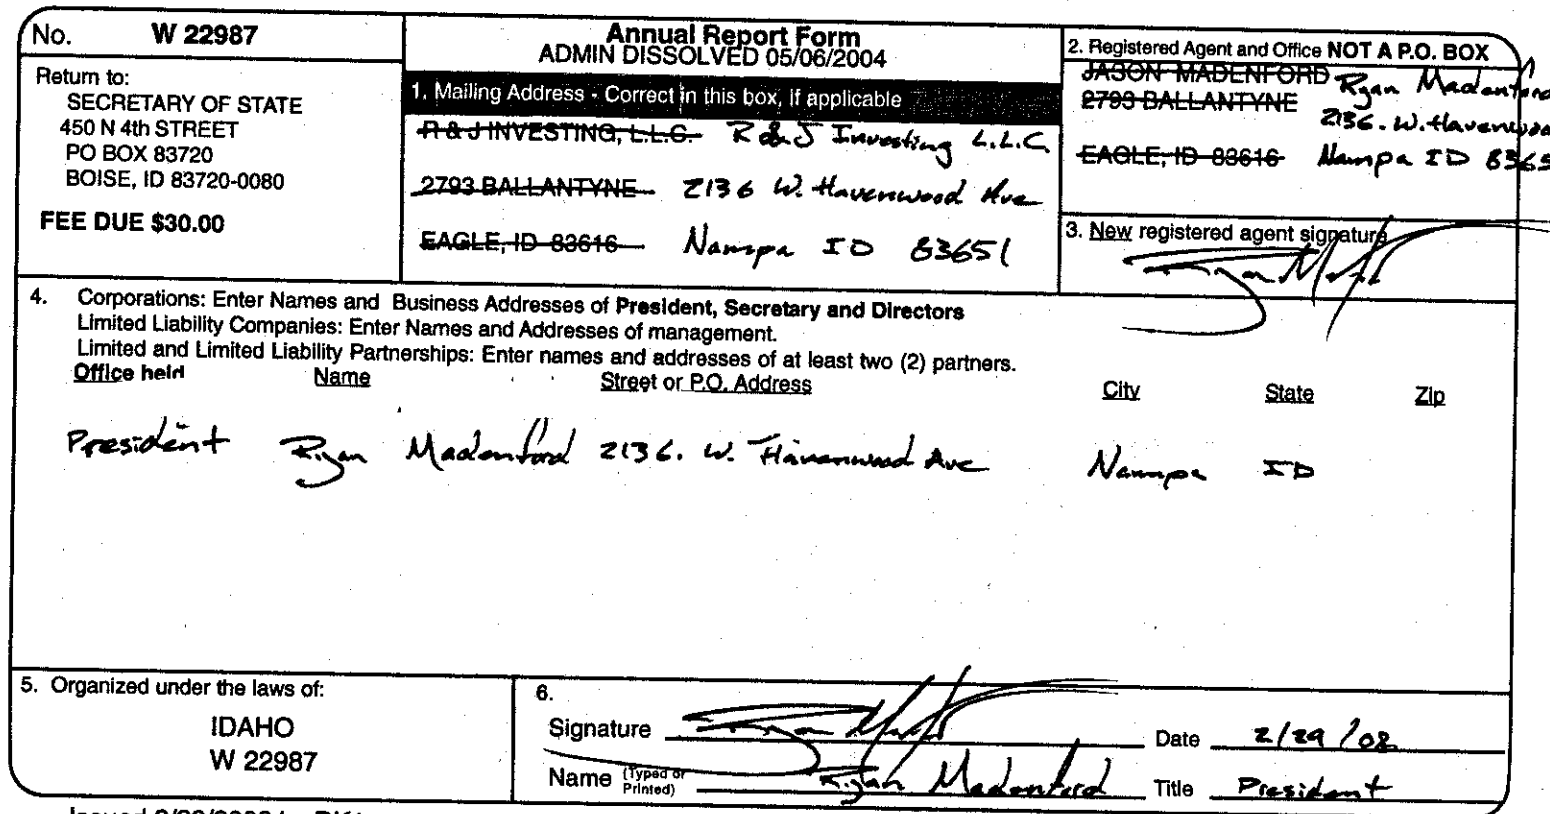 No. W 22987
Return to:
SECRETARY OF STATE
450 N 4th STREET
PO BOX 83720
BOISE, ID 83720-0080
FEE DUE $30.00
Annual Report Form
ADMIN DISSOLVED 05/06/2004
1. Mailing Address - Correct in this box, if applicable
R & J INVESTING, L.L.C. R & J Investing L.L.C.
2793 BALLANTYNE 2136 W. Havenwood Ave
EAGLE, ID 83616 Nampa ID 83651
2. Registered Agent and Office NOT A P.O. BOX
JASON MADENFORD Ryan Madenford
2793 BALLANTYNE 2136. W. Havenwood
EAGLE, ID 83616 Nampa ID 8365
3. New registered agent signature
4. Corporations: Enter Names and Business Addresses of President, Secretary and Directors
Limited Liability Companies: Enter Names and Addresses of management.
Limited and Limited Liability Partnerships: Enter names and addresses of at least two (2) partners.
Office held Name Street or P.O. Address City State Zip
President Ryan Madenford 2136. W. Havenwood Ave Nampa ID
5. Organized under the laws of:
IDAHO
W 22987
6.
Signature Date 2/29/08
Name (Typed or Printed) Ryan Madenford Title President